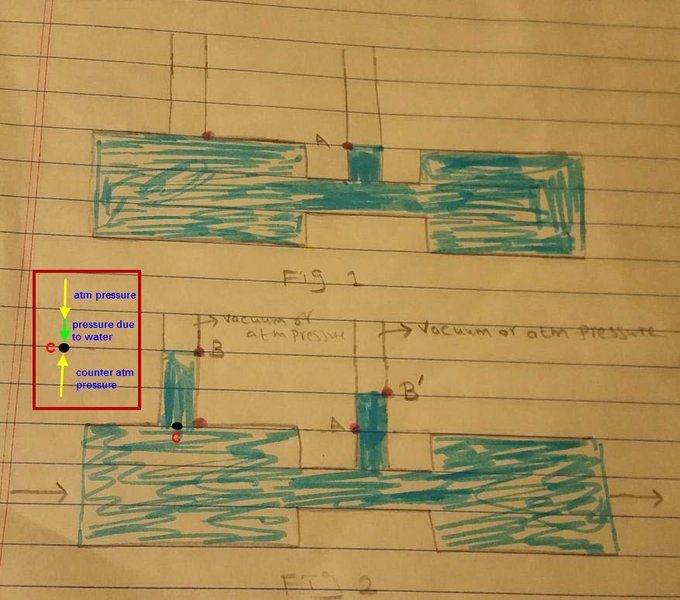 A
Fig 1
atm pressure
pressure due
to water
C
counter atm
pressure
Vacuum or
atm pressure
Vacuum or atm pressure
B
B'
A
C
Fig 2